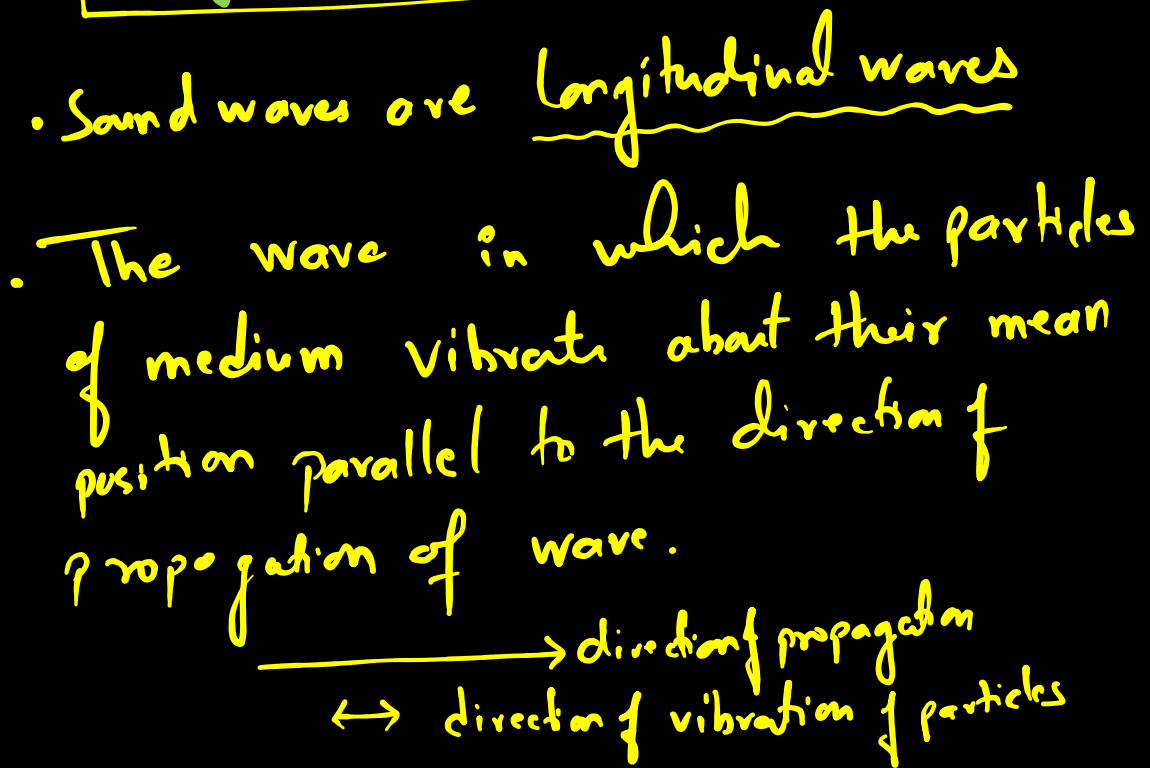 • Sound waves are longitudinal waves
• The wave in which the particles
of medium vibrate about their mean
position parallel to the direction of
propagation of wave.
→ direction of propagation
↔ direction of vibration of particles